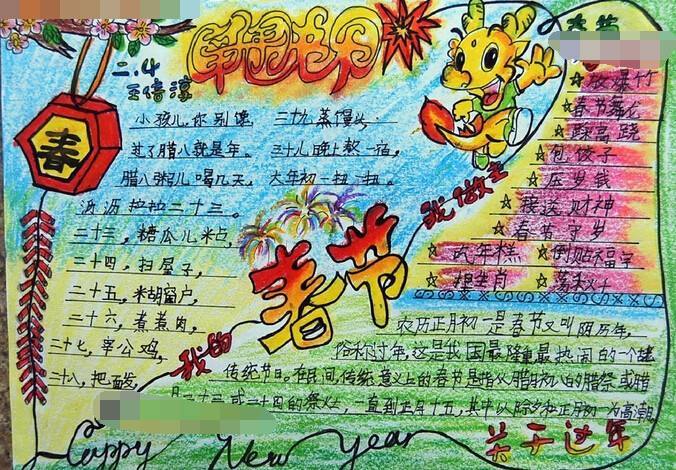 二.4
春节
春
小孩儿，你别馋
过了腊八就是年。
腊八粥儿喝几天，
沥沥拉拉二十三。
二十三，糖瓜儿粘，
二十四，扫屋子，
二十五，米胡窗户，
二十六，煮煮肉，
二十七，宰公鸡，
二十八，把面发
二十九蒸馒头．
三十儿晚上熬一宿，
大年初一扭一扭。
我的
春节
我做主
☆放爆竹
☆春节舞龙
☆踩高跷
☆包饺子
☆压岁钱
☆接送财神
☆春节守岁
☆吃年糕
☆倒贴福字
☆拜生肖
☆荡秋千
农历正月初一是春节又叫阴历年，
俗称过年，这是我国最隆重最热闹的一个
传统节日。在民间，传统意义上的春节是指从腊月初八的腊祭或腊
月二十三或二十四的祭灶，一直到正月十五，其中以除夕和正月初一为高潮
Happy New Year
关于过年